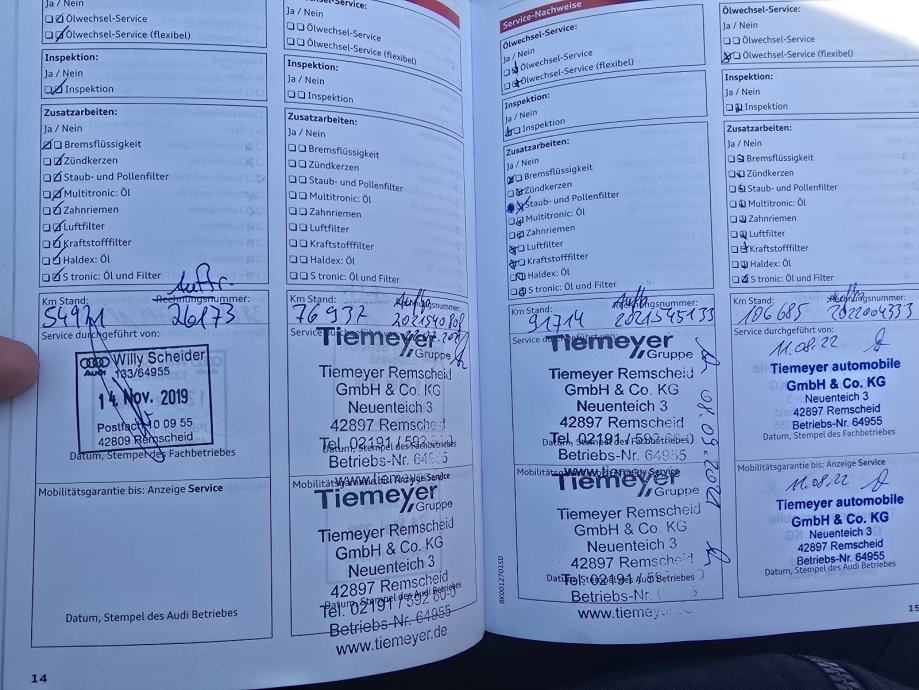 Ja / Nein
Ölwechsel-Service
Ölwechsel-Service (flexibel)
Inspektion:
Ja / Nein
Inspektion
Zusatzarbeiten:
Ja / Nein
Bremsflüssigkeit
Zündkerzen
Staub- und Pollenfilter
Multitronic: Öl
Zahnriemen
Luftfilter
Kraftstofffilter
Haldex: Öl
S tronic: Öl und Filter
Auftr.
Km Stand:
Rechnungsnummer:
54921
26173
Service durchgeführt von:
Audi
Willy Scheider
133/64955
14. Nov. 2019
Postfach 10 09 55
42809 Remscheid
Datum, Stempel des Fachbetriebes
Mobilitätsgarantie bis: Anzeige Service
Datum, Stempel des Audi Betriebes
14
Ölwechsel-Service:
Ja / Nein
Ölwechsel-Service
Ölwechsel-Service (flexibel)
Inspektion:
Ja / Nein
Inspektion
Zusatzarbeiten:
Ja / Nein
Bremsflüssigkeit
Zündkerzen
Staub- und Pollenfilter
Multitronic: Öl
Zahnriemen
Luftfilter
Kraftstofffilter
Haldex: Öl
S tronic: Öl und Filter
Km Stand:
76937
Tiemeyer
Gruppe
Tiemeyer Remscheid
GmbH & Co. KG
Neuenteich 3
42897 Remscheid
Tel. 02191 / 592
Betriebs-Nr. 64955
www.tiemeyer.de
Tiemeyer
Gruppe
Tiemeyer Remscheid
GmbH & Co. KG
Neuenteich 3
42897 Remscheid
Tel. 02191 / 592
Betriebs-Nr. 64955
www.tiemeyer.de
Service-Nachweise
Ölwechsel-Service:
Ja / Nein
Ölwechsel-Service
Ölwechsel-Service (flexibel)
Inspektion:
Ja / Nein
Inspektion
Zusatzarbeiten:
Ja / Nein
Bremsflüssigkeit
Zündkerzen
Staub- und Pollenfilter
Multitronic: Öl
Zahnriemen
Luftfilter
Kraftstofffilter
Haldex: Öl
S tronic: Öl und Filter
Km Stand:
91714
2021545133
Tiemeyer
Gruppe
Tiemeyer Remscheid
GmbH & Co. KG
Neuenteich 3
42897 Remscheid
Tel. 02191 / 592
Betriebs-Nr. 64955
08.09.2021
Tiemeyer
Gruppe
Tiemeyer Remscheid
GmbH & Co. KG
Neuenteich 3
42897 Remscheid
Tel. 02191 / 592
Betriebs-Nr.
www.tiemeyer.
BK0012701SD
Ölwechsel-Service:
Ja / Nein
Ölwechsel-Service
Ölwechsel-Service (flexibel)
Inspektion:
Ja / Nein
Inspektion
Zusatzarbeiten:
Ja / Nein
Bremsflüssigkeit
Zündkerzen
Staub- und Pollenfilter
Multitronic: Öl
Zahnriemen
Luftfilter
Kraftstofffilter
Haldex: Öl
S tronic: Öl und Filter
Km Stand:
106685
2022004333
Service durchgeführt von:
11.08.22
Tiemeyer automobile
GmbH & Co. KG
Neuenteich 3
42897 Remscheid
Betriebs-Nr. 64955
Datum, Stempel des Fachbetriebes
Mobilitätsgarantie bis: Anzeige Service
11.08.22
Tiemeyer automobile
GmbH & Co. KG
Neuenteich 3
42897 Remscheid
Betriebs-Nr. 64955
Datum, Stempel des Audi Betriebes
15